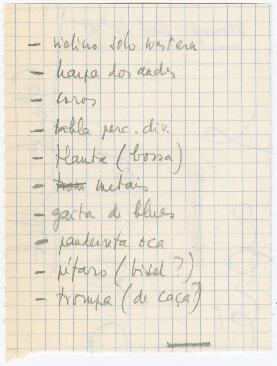 - violino solo western
- harpa dos andes
- coros
- tabla perc. div.
- flauta (bossa)
- trom metais
- gaita de blues
- pandeireta oca
- pífaro (bisel?)
- trompa (de caça?)